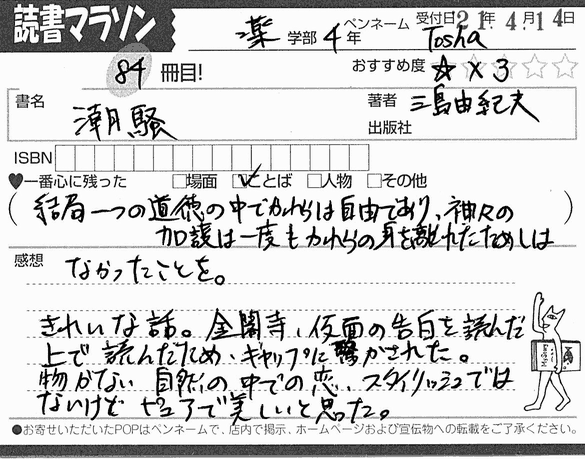 読書マラソン
薬学部4年 ペンネーム Tosha 受付日21年4月14日
84冊目! おすすめ度 ☆×3☆☆☆
書名 潮騒 著者 三島由紀夫
出版社
ISBN
♥一番心に残った □場面 ☑ことば □人物 □その他
(結局一つの道徳の中でかれらは自由であり、神々の)
加護は一度もかれらの身を離れたためしは
感想 なかったことを。
きれいな話。金閣寺、仮面の告白を読んだ
上で読んだため、ギャップに驚かされた。
物がない自然の中での恋、スタイリッシュでは
ないけどピュアで美しいと思った。
●お寄せいただいたPOPはペンネームで、店内で掲示、ホームページおよび宣伝物への転載をご了承下さい。